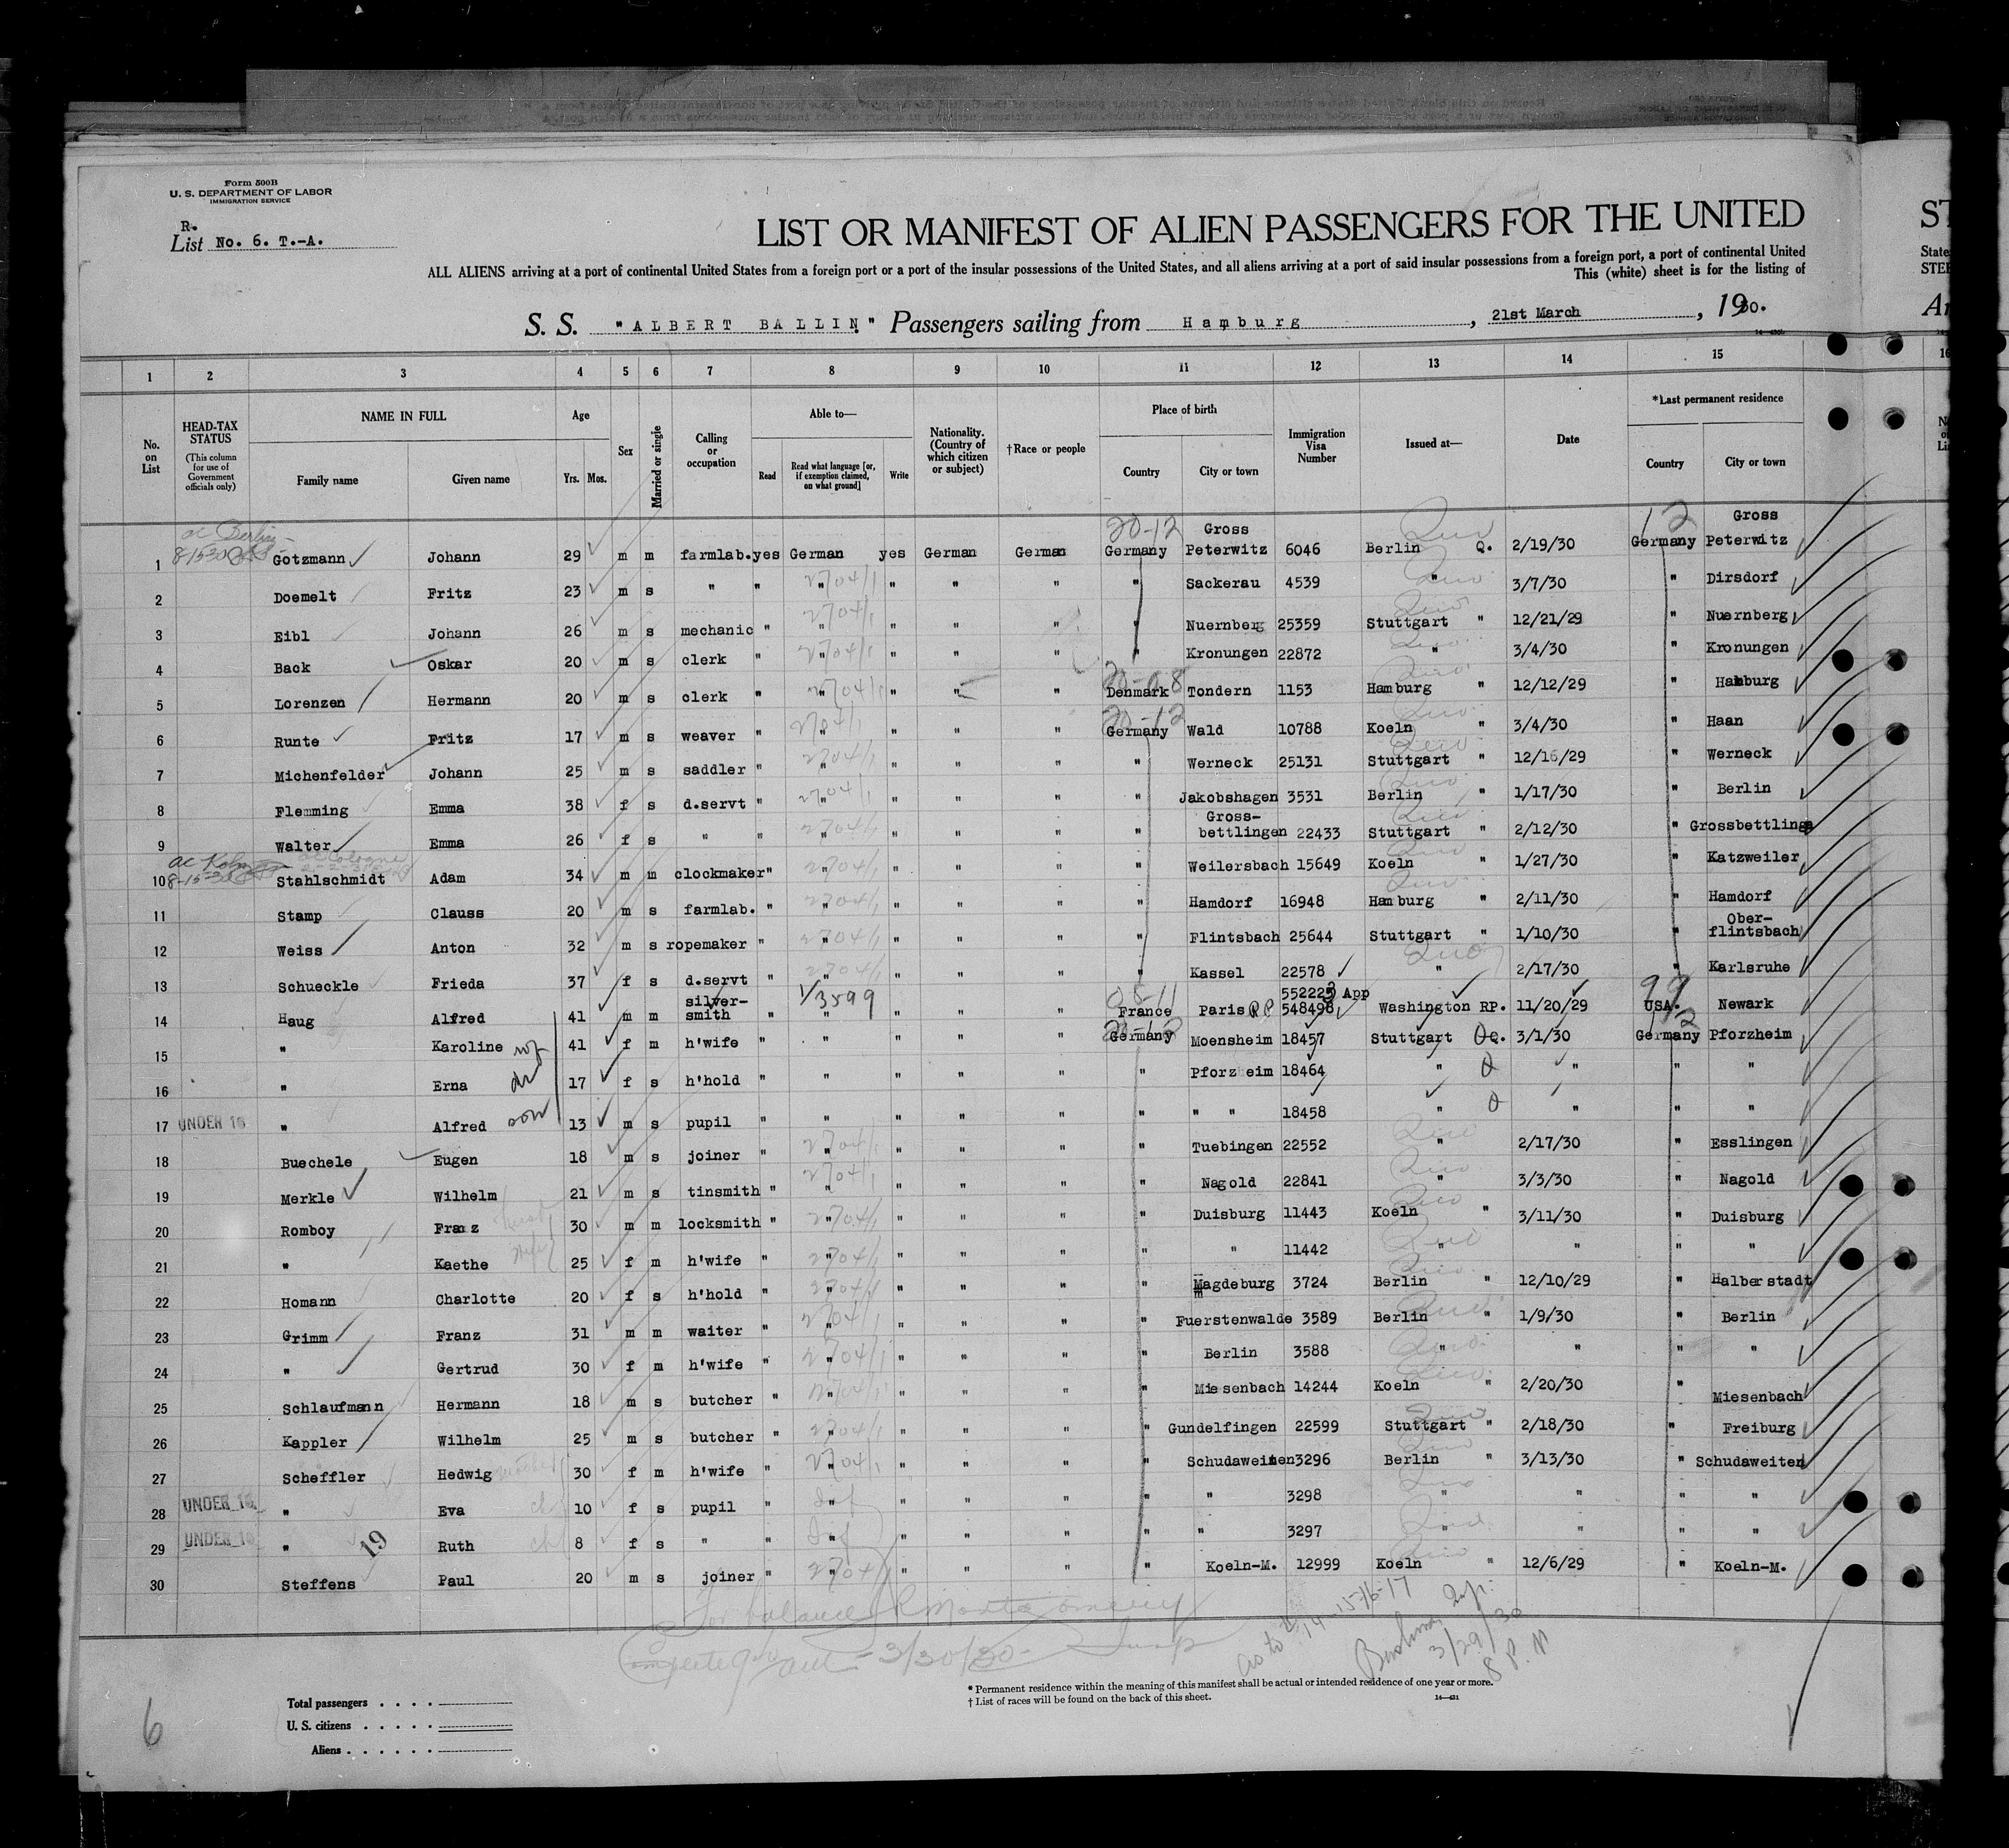 Form 500B
U. S. DEPARTMENT OF LABOR
IMMIGRATION SERVICE
R.
List No. 6. T.-A.
LIST OR MANIFEST OF ALIEN PASSENGERS FOR THE UNITED
ST
ALL ALIENS arriving at a port of continental United States from a foreign port or a port of the insular possessions of the United States, and all aliens arriving at a port of said insular possessions from a foreign port, a port of continental United
State
This (white) sheet is for the listing of
STEE
S. S. "ALBERT BALLIN" Passengers sailing from Hamburg, 21st March, 1930.
Ar
1 2 3 4 5 6 7 8 9 10 11 12 13 14 15 16
No. on List
HEAD-TAX STATUS (This column for use of Government officials only)
NAME IN FULL Family name Given name
Age Yrs. Mos.
Sex
Married or single
Calling or occupation
Able to— Read Read what language [or, if exemption claimed, on what ground] Write
Nationality. (Country of which citizen or subject)
†Race or people
Place of birth Country City or town
Immigration Visa Number
Issued at—
Date
*Last permanent residence Country City or town
ac Berlin 20-12 Gross 12 Gross
1 8-15-30 Gotzmann Johann 29 m m farmlab. yes German yes German German Germany Peterwitz 6046 Berlin Q. 2/19/30 Germany Peterwitz
2 Doemelt Fritz 23 m s " " 2704/1 " " " " " Sackerau 4539 " 3/7/30 " Dirsdorf
3 Eibl Johann 26 m s mechanic " 2704/1 " " " " " Nuernberg 25359 Stuttgart " 12/21/29 " Nuernberg
4 Back Oskar 20 m s clerk " 2704/1 " " " " Kronungen 22872 " 3/4/30 " Kronungen
5 Lorenzen Hermann 20 m s clerk " 2704/1 " " " " Denmark Tondern 1153 Hamburg " 12/12/29 " Hamburg
20-12
6 Runte Fritz 17 m s weaver " 2704/1 " " " " Germany Wald 10788 Koeln " 3/4/30 " Haan
7 Michenfelder Johann 25 m s saddler " 2704/1 " " " " " Werneck 25131 Stuttgart " 12/16/29 " Werneck
8 Flemming Emma 38 f s d.servt " 2704/1 " " " " " Jakobshagen 3531 Berlin " 1/17/30 " Berlin
Gross-
9 Walter Emma 26 f s " " 2704/1 " " " " " bettlingen 22433 Stuttgart " 2/12/30 " Grossbettlinge
ac Koln ac Cologne
10 8-15-30 Stahlschmidt Adam 34 m m clockmaker " 2704/1 " " " " " Weilersbach 15649 Koeln " 1/27/30 " Katzweiler
11 Stamp Clauss 20 m s farmlab. " 2704/1 " " " " " Hamdorf 16948 Hamburg " 2/11/30 " Hamdorf
Ober-
12 Weiss Anton 32 m s ropemaker " 2704/1 " " " " " Flintsbach 25644 Stuttgart " 1/10/30 " flintsbach
13 Schueckle Frieda 37 f s d.servt " 2704/1 " " " " " Kassel 22578 " 2/17/30 " Karlsruhe
silver- 1/3599 552223 App 99
14 Haug Alfred 41 m m smith " " " " " France Paris RP 548498 Washington RP. 11/20/29 USA. Newark
15 " Karoline wf 41 f m h'wife " " " " " Germany Moensheim 18457 Stuttgart Q. 3/1/30 Germany Pforzheim
16 " Erna 17 f s h'hold " " " " " " Pforzheim 18464 " Q " " "
17 UNDER 16 " Alfred son 13 m s pupil " " " " " " " " 18458 " Q " " "
18 Buechele Eugen 18 m s joiner " 2704/1 " " " " " Tuebingen 22552 " 2/17/30 " Esslingen
19 Merkle Wilhelm 21 m s tinsmith " 2704/1 " " " " " Nagold 22841 " 3/3/30 " Nagold
20 Romboy Franz husb 30 m m locksmith " 2704/1 " " " " " Duisburg 11443 Koeln " 3/11/30 " Duisburg
21 " Kaethe wife 25 f m h'wife " 2704/1 " " " " " " 11442 " " " "
22 Homann Charlotte 20 f s h'hold " 2704/1 " " " " " Magdeburg 3724 Berlin " 12/10/29 " Halberstadt
23 Grimm Franz 31 m m waiter " 2704/1 " " " " " Fuerstenwalde 3589 Berlin " 1/9/30 " Berlin
24 " Gertrud 30 f m h'wife " 2704/1 " " " " " Berlin 3588 " " "
25 Schlaufmann Hermann 18 m s butcher " 2704/1 " " " " " Miesenbach 14244 Koeln " 2/20/30 " Miesenbach
26 Kappler Wilhelm 25 m s butcher " 2704/1 " " " " " Gundelfingen 22599 Stuttgart " 2/18/30 " Freiburg
27 Scheffler Hedwig mother 30 f m h'wife " 2704/1 " " " " " Schudaweiten 3296 Berlin " 3/13/30 " Schudaweiten
28 UNDER 16 " Eva ch 10 f s pupil " " " " " " " 3298 " " " "
29 UNDER 16 " 19 Ruth ch 8 f s " " " " " " " " 3297 " " " "
30 Steffens Paul 20 m s joiner " 2704/1 " " " " " Koeln-M. 12999 Koeln " 12/6/29 " Koeln-M.
For balance
Completed 3/30/30 Insp
as to # 14-15-16-17
Insp.
3/29/30
8 P. M
* Permanent residence within the meaning of this manifest shall be actual or intended residence of one year or more.
† List of races will be found on the back of this sheet.
14—431
Total passengers
U. S. citizens
Aliens
6